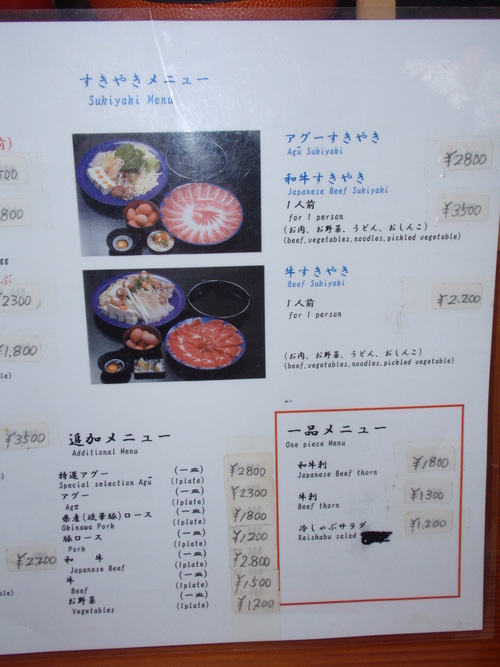 すきやきメニュー
Sukiyaki Menu
アグーすきやき
Agū Sukiyaki
¥2800
和牛すきやき
Japanese Beef Sukiyaki
¥3500
1人前
for 1 person
(お肉、お野菜、うどん、おしんこ)
(beef,vegetables,noodles,pickled vegetable)
牛すきやき
Beef Sukiyaki
¥2.200
1人前
for 1 person
(お肉、お野菜、うどん、おしんこ)
(beef,vegetables,noodles,pickled vegetable)
前)
500
800
gg
ぶ
2300
¥1,800
le)
¥3500
¥2200
追加メニュー
Additional Menu
特選アグー (一皿) ¥2800
Special selection Agū (1plate)
アグー (一皿) ¥2300
Agū (1plate)
県産(琉華豚)ロース (一皿) ¥1800
Okinawa Pork (1plate)
豚ロース (一皿) ¥1,200
Pork (1plate)
和 牛 (一皿) ¥2.800
Japanese Beef (1plate)
牛 (一皿) ¥1,500
Beef (1plate)
お野菜 (一皿) ¥1200
Vegetables (1plate)
一品メニュー
One piece Menu
和牛刺 ¥1800
Japanese Beef thorn
牛刺 ¥1300
Beef thorn
冷しゃぶサラダ ¥1,200
Reishabu salad